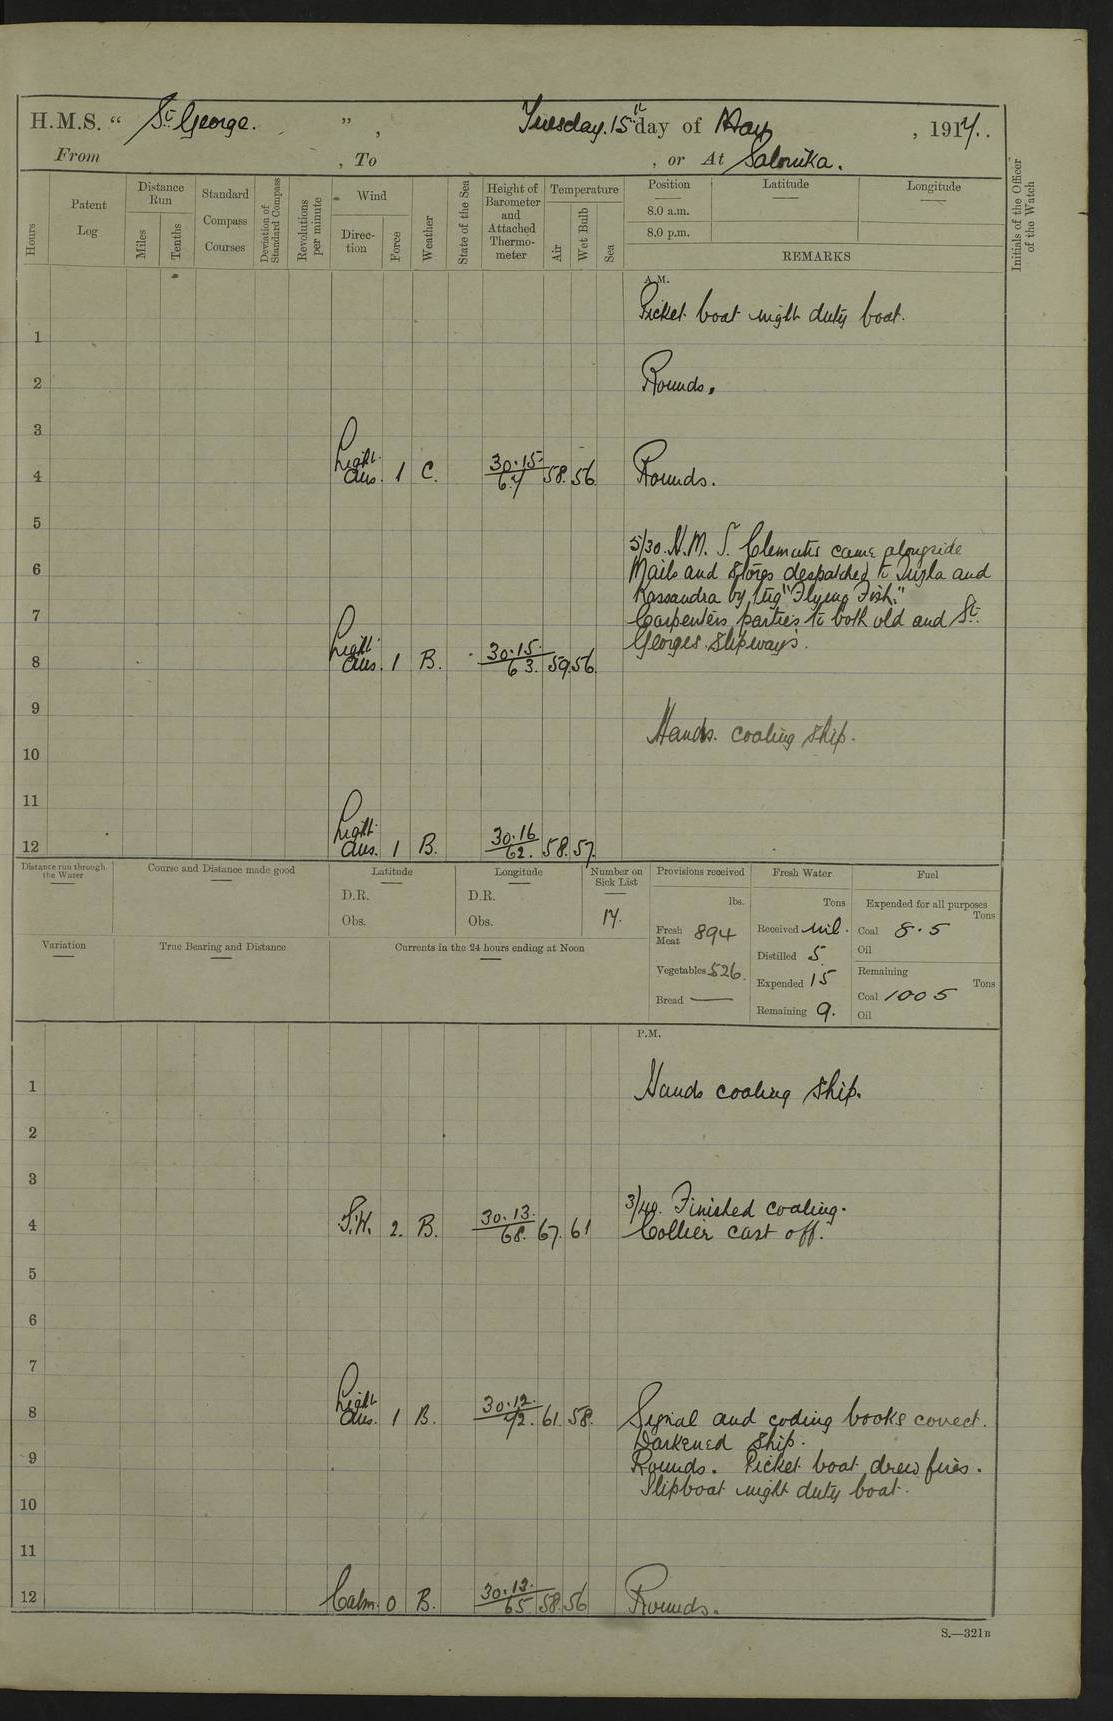 H.M.S. “ St George. ” , Tuesday. 15th day of May , 1917..
From , To , or At Salonika.
Hours
Patent Log
Distance Run
Miles
Tenths
Standard Compass Courses
Deviation of Standard Compass
Revolutions per minute
Wind
Direction
Force
Weather
State of the Sea
Height of Barometer and Attached Thermometer
Temperature
Air
Wet Bulb
Sea
Position Latitude Longitude
8.0 a.m.
8.0 p.m.
REMARKS
Initials of the Officer of the Watch
A.M.
Picket boat night duty boat.
1
2 Rounds.
3
4 Light Airs. 1 C. 30.15. 67 58. 56. Rounds.
5
5/30. H.M.S. Clematis came alongside
6 Mails and stores despatched to Tuzla and
Kassandra by tug "Flying Fish."
7 Carpenters parties to both old and St.
Georges slipways.
8 Light Airs. 1 B. 30.15. 63. 59. 56.
9
Hands. coaling ship.
10
11
12 Light Airs. 1 B. 30.16 62. 58. 57.
Distance run through the Water
Course and Distance made good
Latitude
D.R.
Obs.
Longitude
D.R.
Obs.
Number on Sick List
17.
Provisions received
lbs.
Fresh Meat 894
Vegetables 526.
Bread —
Fresh Water
Tons
Received nil.
Distilled 5.
Expended 15
Remaining 9.
Fuel
Expended for all purposes
Tons
Coal 8.5
Oil
Remaining
Tons
Coal 1005
Oil
Variation
True Bearing and Distance
Currents in the 24 hours ending at Noon
P.M.
1 Hands coaling ship.
2
3
3/40. Finished coaling.
4 S.W. 2. B. 30.13. 68. 67. 61 Collier cast off.
5
6
7
8 Light Airs. 1 B. 30.12. 72. 61. 58. Signal and coding books correct.
Darkened ship.
9 Rounds. Picket boat drew fires.
Slipboat night duty boat.
10
11
12 Calm. 0 B. 30.13. 65 58. 56 Rounds.
S.—321B